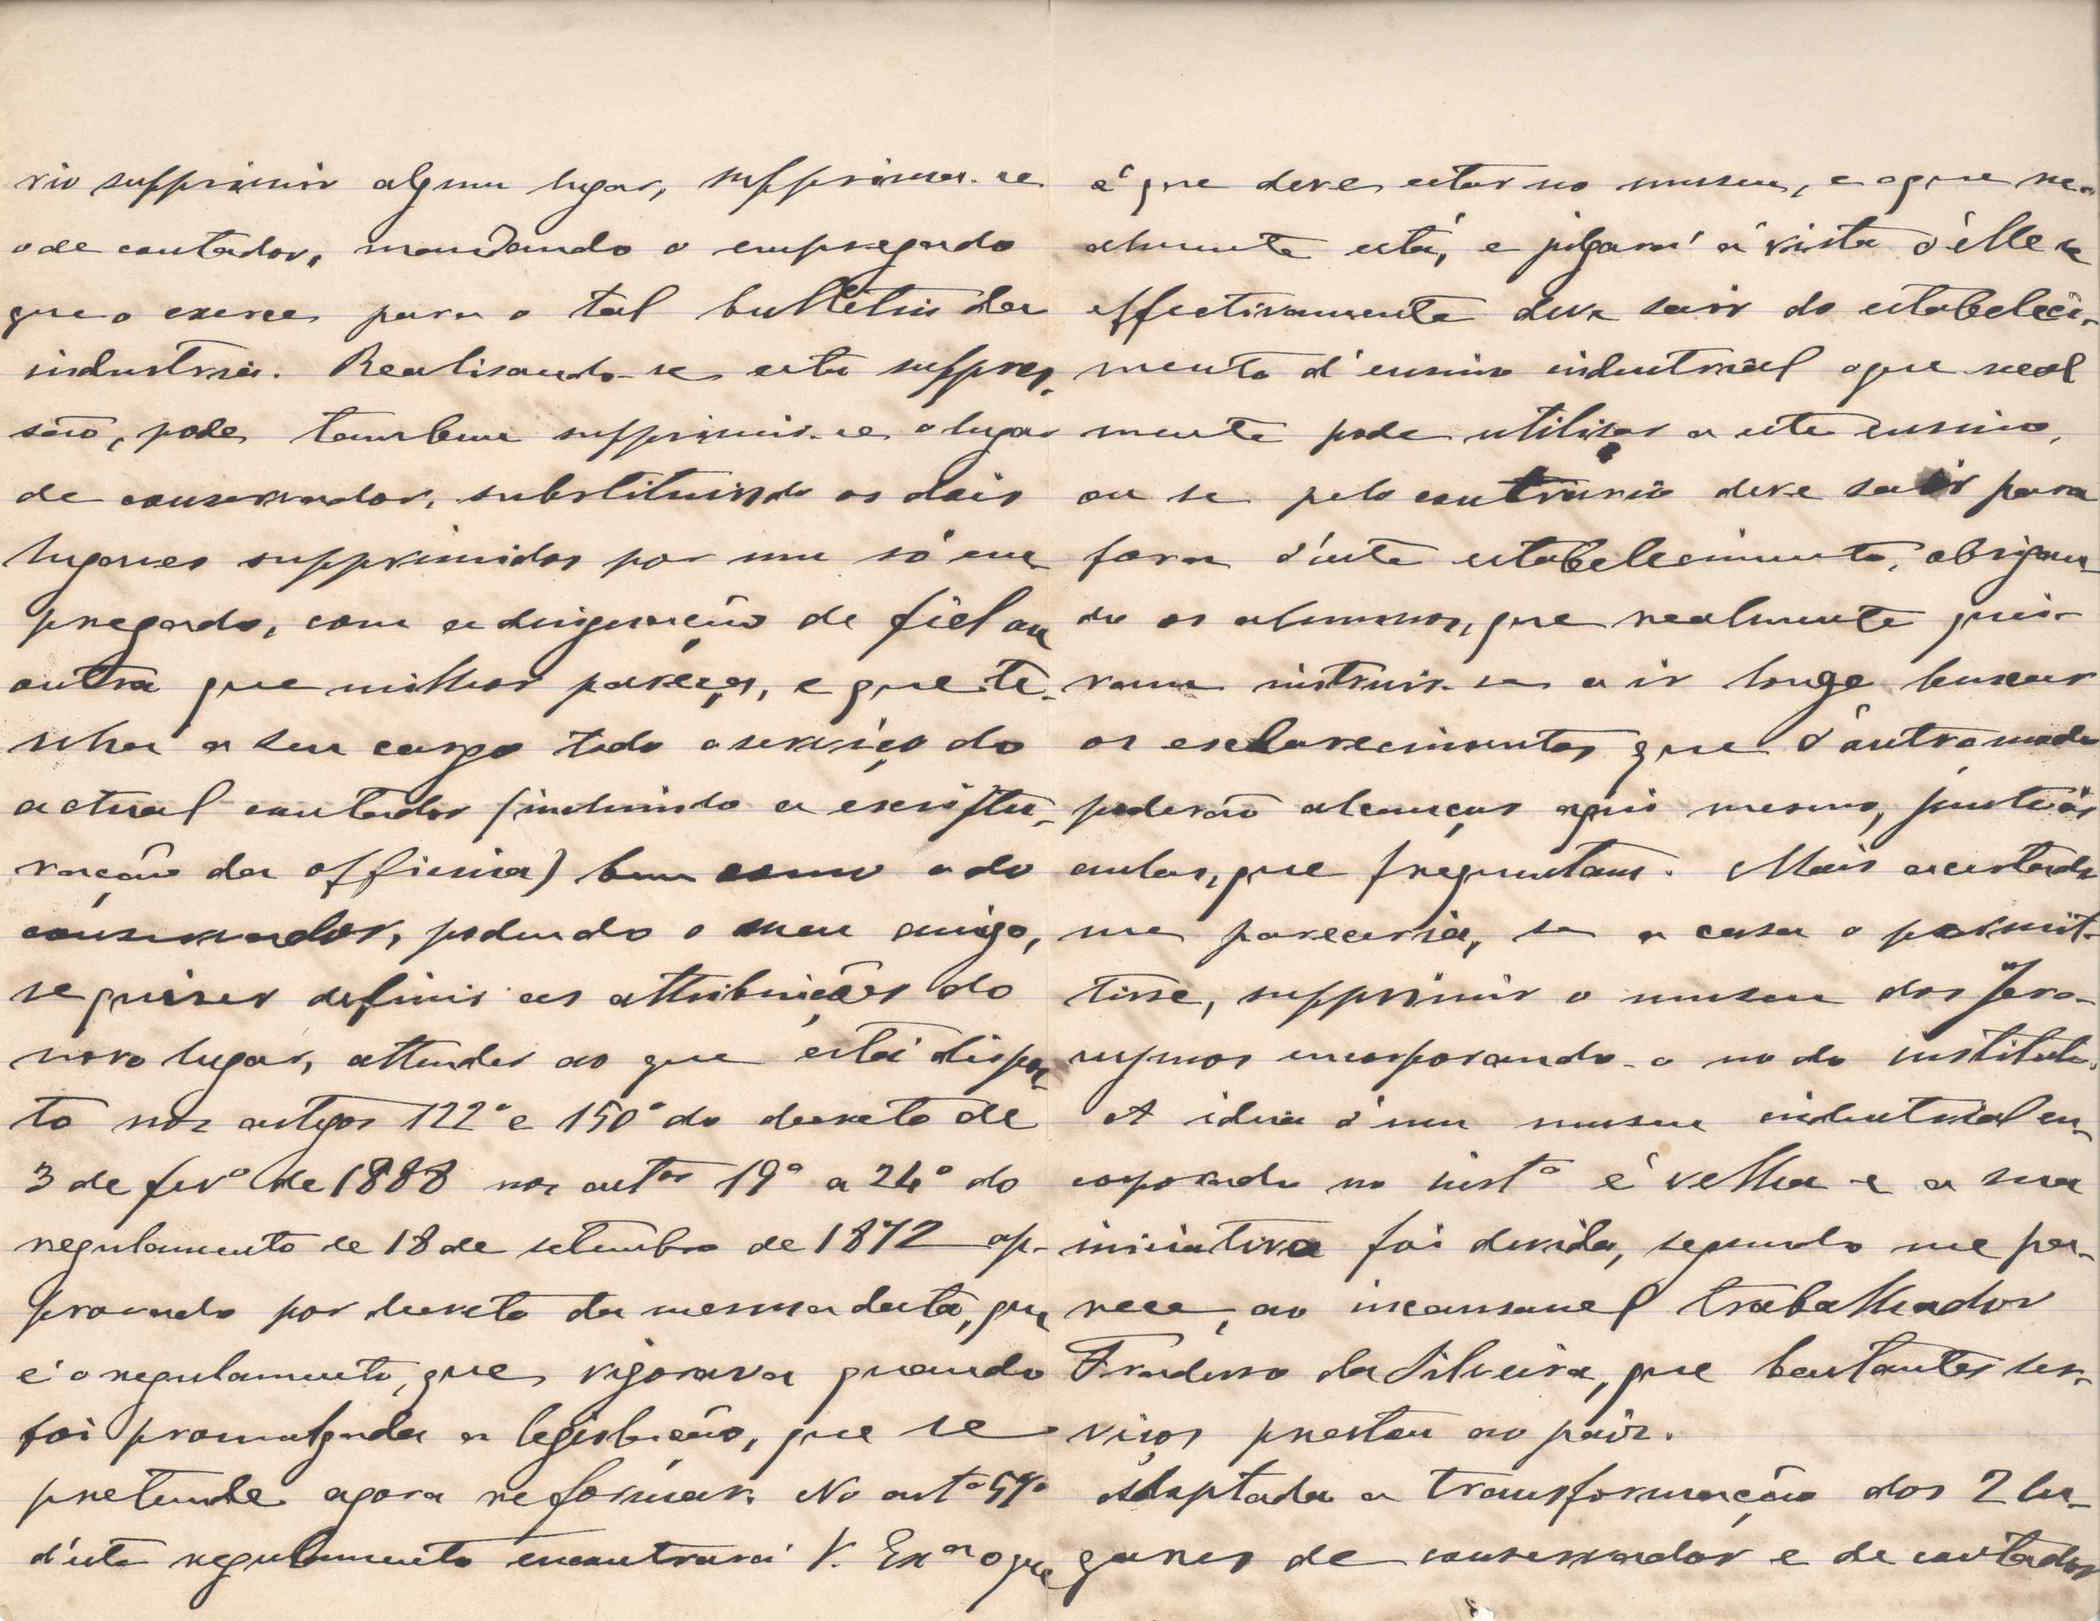 rio supprimir algum lugar, supprima-se
o de contador, mandando o empregado
que o exerce para o tal bulletin da
industria. Realisando-se esta suppres-
são, pode tambem supprimir-se o lugar
de conservador, substituindo os dois
lugares supprimidos por um só em-
pregado, com a designação de fiel ou
outra que milhor pareça, e que te-
nha a seu cargo todo o serviço do
actual contador (incluindo a escriptu-
ração da officina) bem como o do
conservador, podendo o meu amigo,
se quiser definir as attribuições do
novo lugar, attender ao que está dispos-
to nos artigos 122º e 150º do decreto de
3 de fevº de 1888 nos artos 19º a 24º do
regulamento de 18 de setembro de 1872 ap-
provado por decreto da mesma data, que
é o regulamento, que vigorava quando
foi promulgada a legislação, que se
pretende agora reformar. No artº 57º
d'este regulamento encontrará V. Exª o que
é que deve estar no museu, e o que re-
almente está, e julgará á vista d'elle se
effectivamente deve sair do estabeleci-
mento d'ensino industrial o que real
mente pode utilisar a este ensino,
ou se pelo contrario deve sair para
fora d'este estabelecimento, obrigan-
do os alumnos, que realmente quei-
ram instruir-se a ir longe buscar
os esclarecimentos que d'outro modo
poderão alcançar aqui mesmo, junto ás
aulas, que frequentam. Mais acertado
me pareceria, se a casa o permit-
tisse, supprimir o museu dos Jero-
nymos encorporando-o no do instituto.
A ideia d'um museu industrial en-
corporado no instº é velha e a sua
iniciativa foi devida, segundo me pa-
rece, ao incansavel trabalhador
Fradesso da Silveira, que bastantes ser-
viços prestou ao paiz.
Adaptada a transformação dos 2 lu-
gares de conservador e de contador